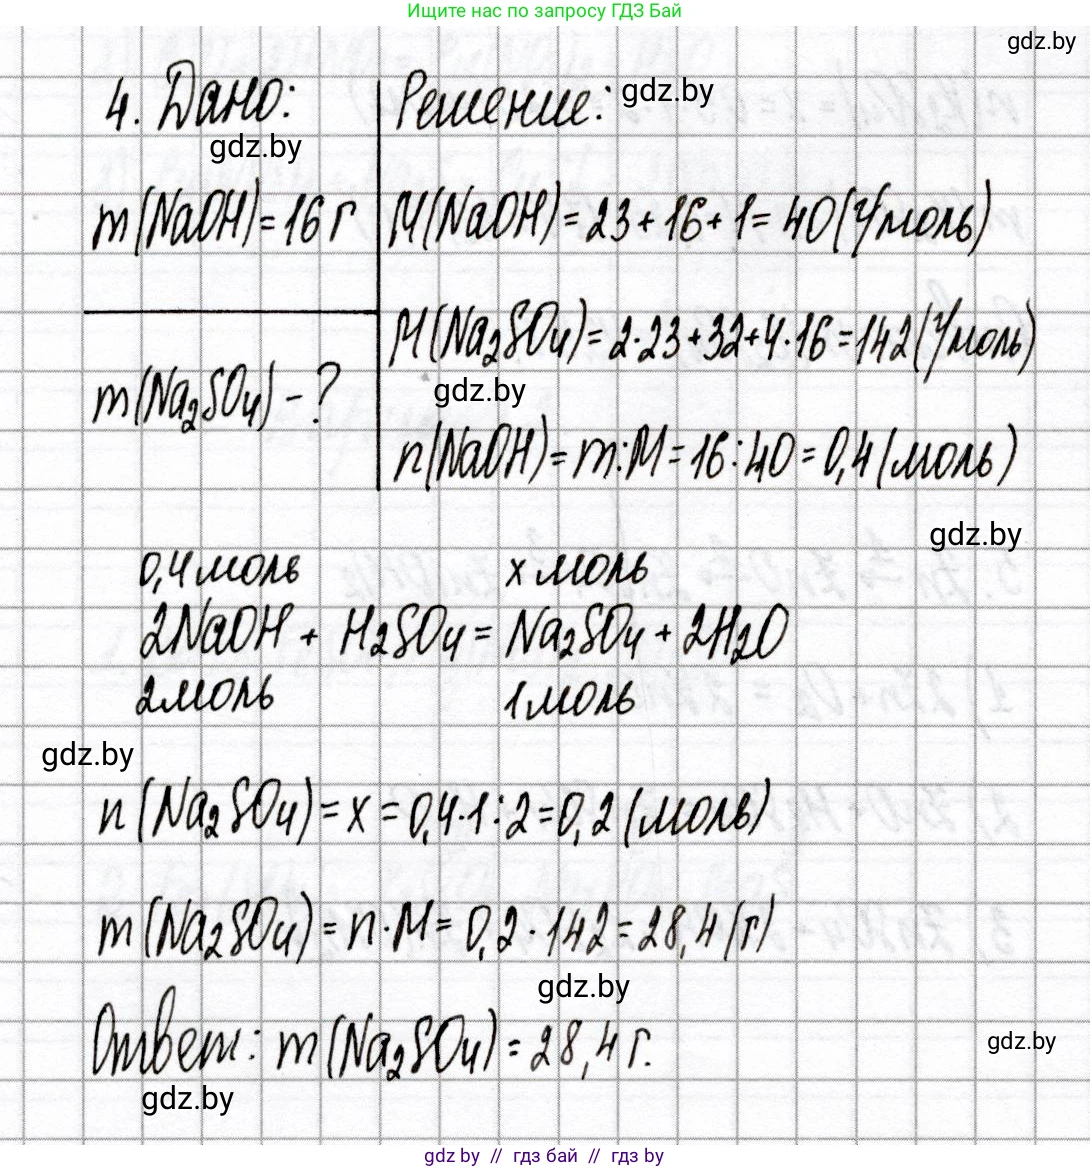 Ищите нас по запросу ГДЗ Бай
gdz.by
4. Дано:
Решение:
gdz.by
gdz.by
m(NaOH)=16 г
M(NaOH)=23+16+1=40(г/моль)
M(Na₂SO₄)=2·23+32+4·16=142(г/моль)
m(Na₂SO₄)-?
gdz.by
n(NaOH)=m:M=16:40=0,4(моль)
gdz.by
0,4 моль x моль
2NaOH + H₂SO₄ = Na₂SO₄ + 2H₂O
2 моль 1 моль
gdz.by
n(Na₂SO₄)=x=0,4·1:2=0,2(моль)
m(Na₂SO₄)=n·M=0,2·142=28,4(г)
gdz.by
Ответ: m(Na₂SO₄)=28,4 г.
gdz.by
gdz.by
gdz.by // гдз бай // гдз by